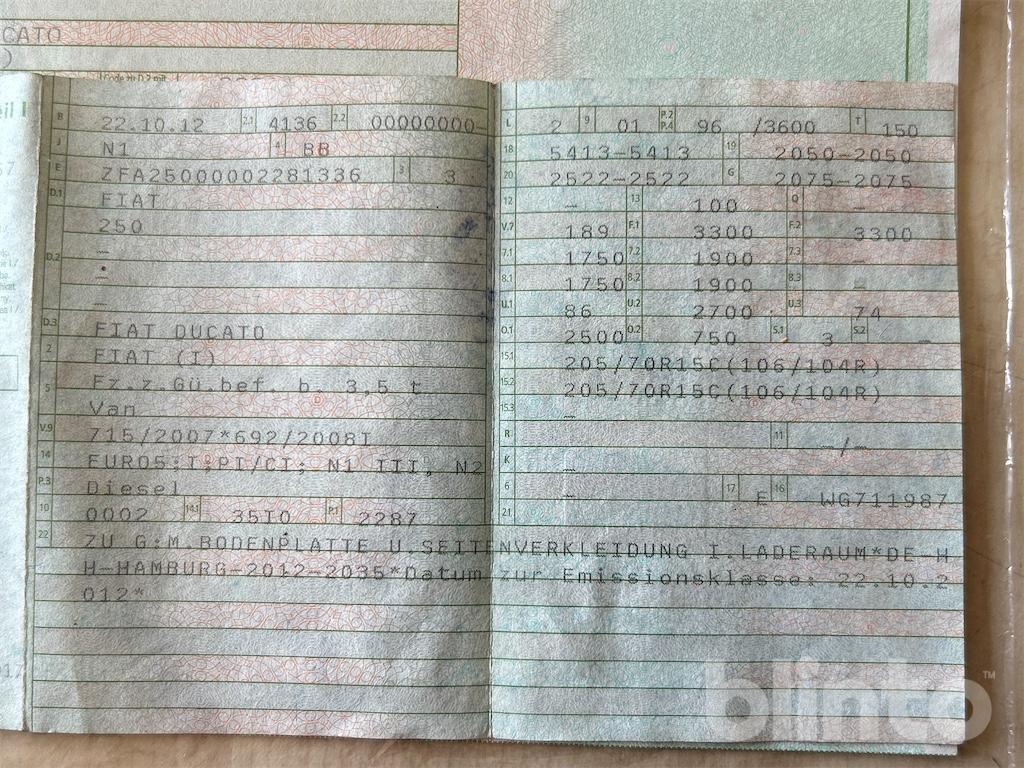 CATO
)
eil I
B 22.10.12 2.1 4136 2.2 00000000-
J N1 4 BB
E ZFA25000002281336 3 3
D.1 FIAT
250
D.2 –
–
–
D.3 FIAT DUCATO
2 FIAT (I)
5 Fz.z.Gü.bef. b. 3,5 t
Van
V.9 715/2007*692/2008I
14 EURO5;I;PI/CI; N1 III, N2
P.3 Diesel
10 0002 14.1 35I0 P.1 2287
L 2 9 01 P.2 P.4 96 /3600 T 150
18 5413-5413 19 2050-2050
20 2522-2522 G 2075-2075
12 – 13 100 Q –
V.7 189 F.1 3300 F.2 3300
7.1 1750 7.2 1900 7.3 –
8.1 1750 8.2 1900 8.3 –
U.1 86 U.2 2700 U.3 74
O.1 2500 O.2 750 S.1 3 S.2 –
15.1 205/70R15C(106/104R)
15.2 205/70R15C(106/104R)
15.3 –
R 11 –/–
K –
6 – 17 E 16 WG711987
21
22 ZU G:M.BODENPLATTE U.SEITENVERKLEIDUNG I.LADERAUM*DE-H
H-HAMBURG-2012-2035*Datum zur Emissionsklasse: 22.10.2
012*
blinto™